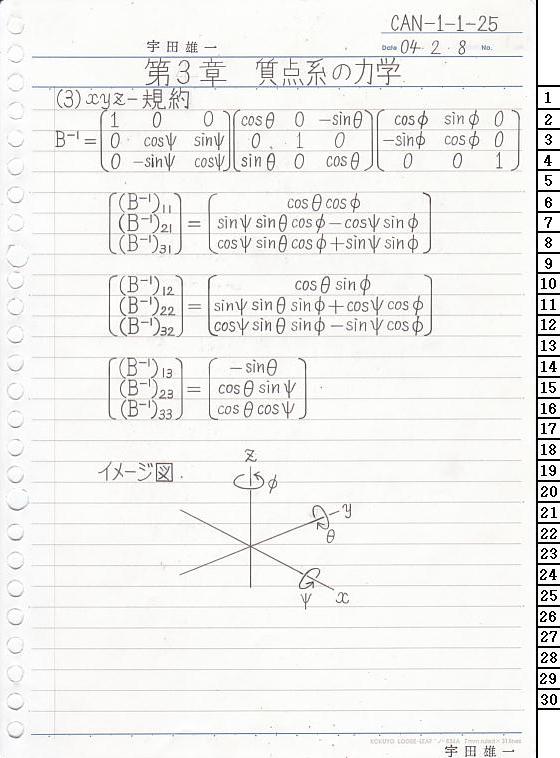 CAN-1-1-25
宇田雄一
Date 04・2・8 No.
第3章 質点系の力学
(3) xyz-規約
B⁻¹ = [1 0 0; 0 cosψ sinψ; 0 -sinψ cosψ] [cosθ 0 -sinθ; 0 1 0; sinθ 0 cosθ] [cosφ sinφ 0; -sinφ cosφ 0; 0 0 1]
[(B⁻¹)₁₁; (B⁻¹)₂₁; (B⁻¹)₃₁] = [cosθ cosφ; sinψ sinθ cosφ - cosψ sinφ; cosψ sinθ cosφ + sinψ sinφ]
[(B⁻¹)₁₂; (B⁻¹)₂₂; (B⁻¹)₃₂] = [cosθ sinφ; sinψ sinθ sinφ + cosψ cosφ; cosψ sinθ sinφ - sinψ cosφ]
[(B⁻¹)₁₃; (B⁻¹)₂₃; (B⁻¹)₃₃] = [-sinθ; cosθ sinψ; cosθ cosψ]
イメージ図.
z
φ
y
θ
ψ
x
KOKUYO LOOSE-LEAF
宇田雄一
1
2
3
4
5
6
7
8
9
10
11
12
13
14
15
16
17
18
19
20
21
22
23
24
25
26
27
28
29
30